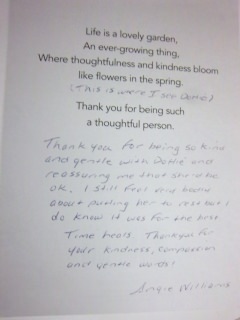 Life is a lovely garden,
An ever-growing thing,
Where thoughtfulness and kindness bloom
like flowers in the spring.
(This is where I see Dottie)
Thank you for being such
a thoughtful person.
Thank you for being so kind
and gentle with Dottie and
reassuring me that she'd be
ok. I still feel bad
about putting her to rest but I
do know it was for the best.
Time heals. Thankyou for
your kindness, compassion
and gentle words!
Angie Williams